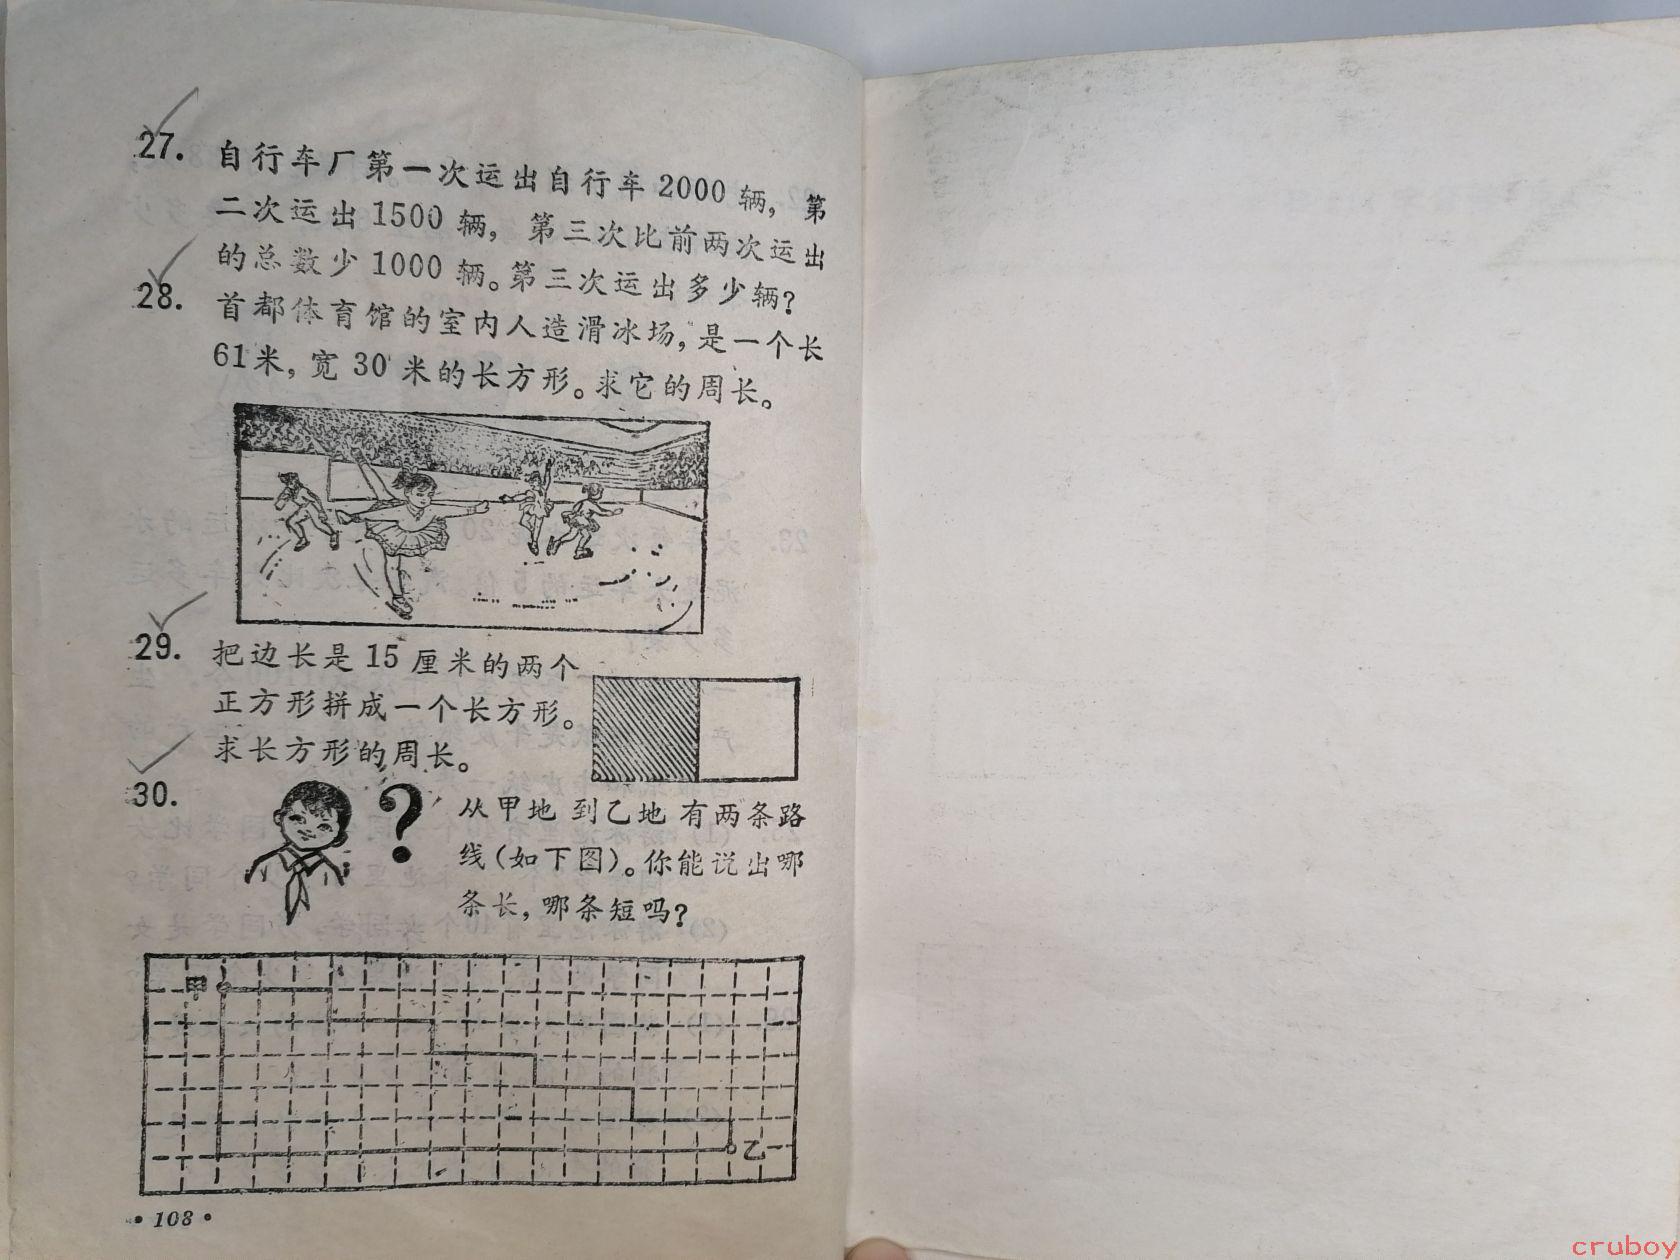 27. 自行车厂第一次运出自行车 2000 辆，第
二次运出 1500 辆，第三次比前两次运出
的总数少 1000 辆。第三次运出多少辆？
28. 首都体育馆的室内人造滑冰场，是一个长
61米，宽 30 米的长方形。求它的周长。
29. 把边长是 15 厘米的两个
正方形拼成一个长方形。
求长方形的周长。
30. ? 从甲地到乙地有两条路
线（如下图）。你能说出哪
条长，哪条短吗？
甲
乙
• 108 •
cruboy